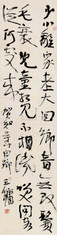 少小離家老大回鄉音無改鬢
毛衰兒童相見不相識笑問客
從何處來
賀知章回鄉 王鏞